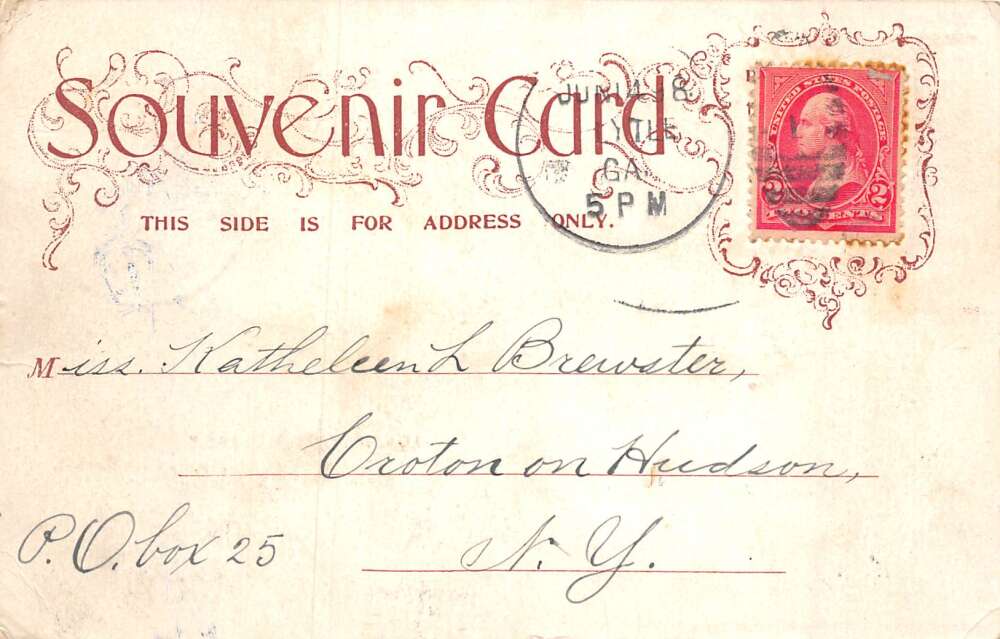 Souvenir Card
THIS SIDE IS FOR ADDRESS ONLY.
JUN 14 18
GA.
5 PM
UNITED STATES POSTAGE
2 2
CENTS
Miss. Katheleen L Brewster,
Croton on Hudson,
P.O. box 25
N. Y.